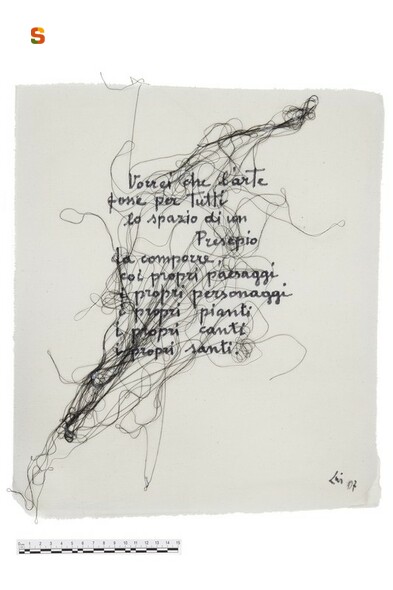 S
Vorrei che l'arte
fosse per tutti
lo spazio di un
Presepio
da comporre,
coi propri paesaggi
i propri personaggi
i propri pianti
i propri canti
i propri santi.
07
0 1 2 3 4 5 6 7 8 9 10 11 12 13 14 15